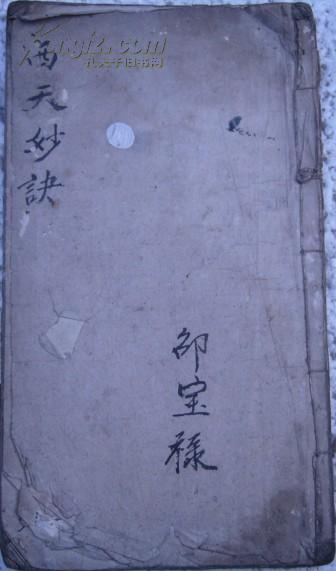 西天妙訣
邵宝禄
Kongfz.com
孔夫子旧书网